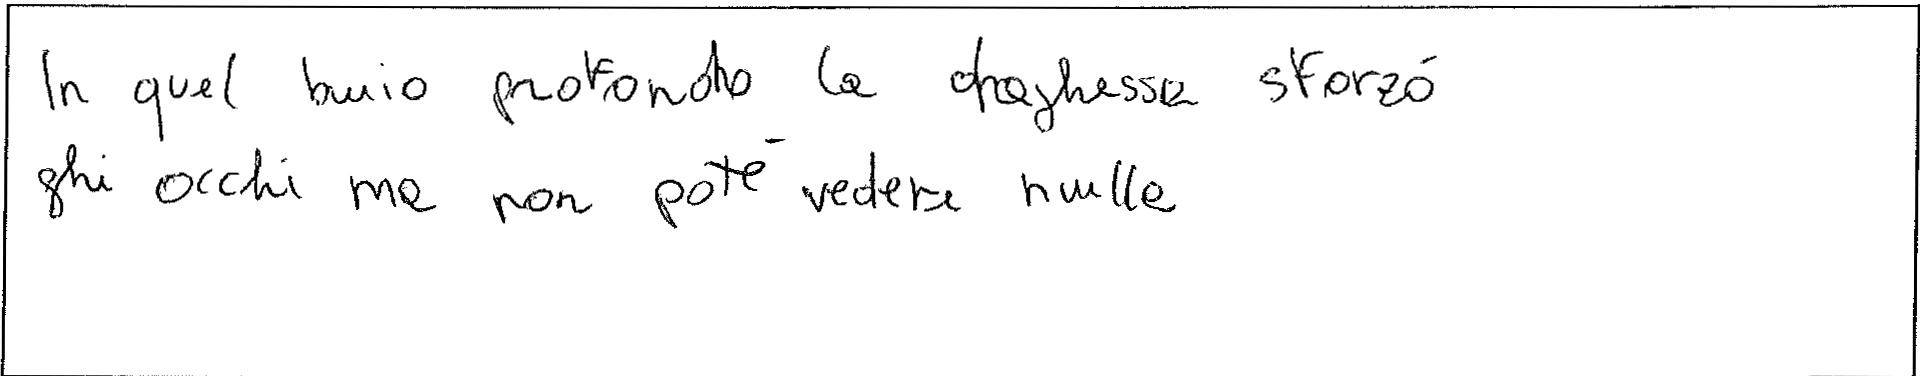 In quel buio profondo la draghessa sforzó
ghi occhi ma non poté vedere nulla